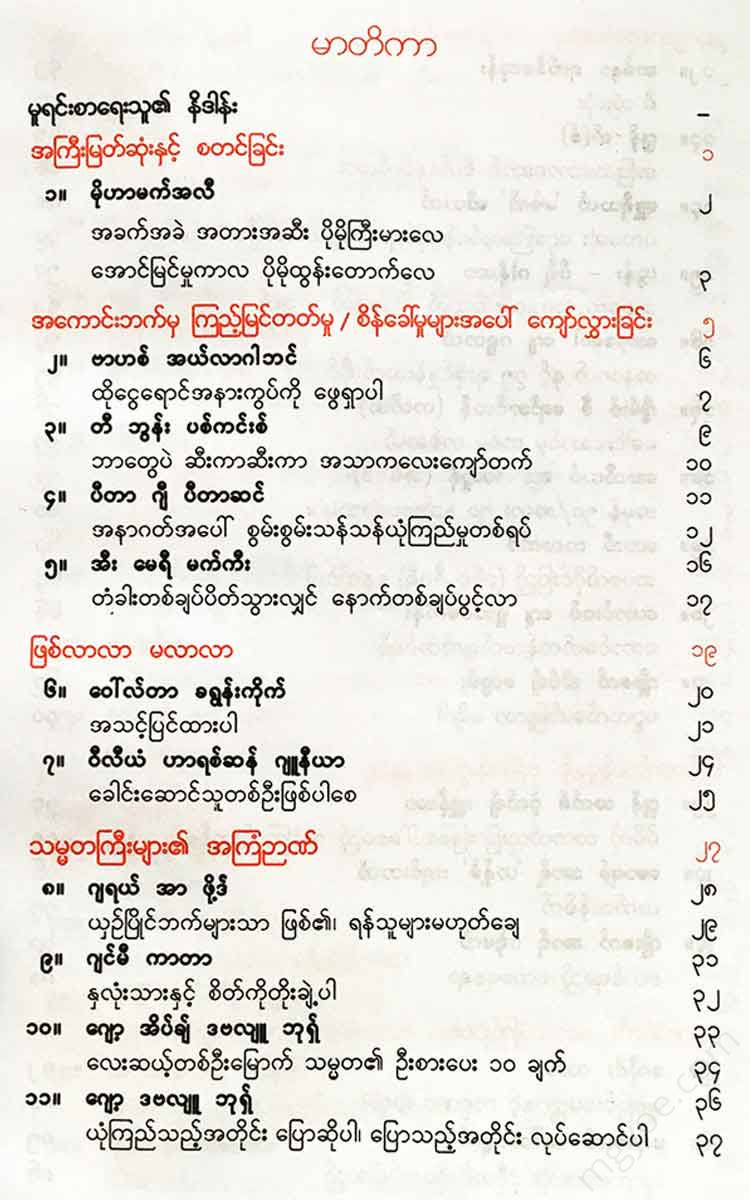 မာတိကာ
မူရင်းစာရေးသူ၏ နိဒါန်း –
အကြီးမြတ်ဆုံးနှင့် စတင်ခြင်း ၁
၁။ မိုဟာမက်အလီ ၂
အခက်အခဲ အတားအဆီး ပိုမိုကြီးမားလေ
အောင်မြင်မှုကာလ ပိုမိုထွန်းတောက်လေ ၃
အကောင်းဘက်မှ ကြည့်မြင်တတ်မှု / စိန်ခေါ်မှုများအပေါ် ကျော်လွှားခြင်း ၅
၂။ ဗာဟစ် အယ်လာဂါဘင် ၆
ထိုငွေရောင်အနားကွပ်ကို ဖွေရှာပါ ၇
၃။ တီ ဘွန်း ပစ်ကင်းစ် ၉
ဘာတွေပဲ ဆီးကာဆီးကာ အသာကလေးကျော်တက် ၁၀
၄။ ပီတာ ဂျီ ပီတာဆင် ၁၁
အနာဂတ်အပေါ် စွမ်းစွမ်းသန်သန်ယုံကြည်မှုတစ်ရပ် ၁၂
၅။ အီး မေရီ မက်ကီး ၁၆
တံခါးတစ်ချပ်ပိတ်သွားလျှင် နောက်တစ်ချပ်ပွင့်လာ ၁၇
ဖြစ်လာလာ မလာလာ ၁၉
၆။ ဝေါ်လ်တာ ခရွန်းကိုက် ၂၀
အသင့်ပြင်ထားပါ ၂၁
၇။ ဝီလီယံ ဟာရစ်ဆန် ဂျူနီယာ ၂၄
ခေါင်းဆောင်သူတစ်ဦးဖြစ်ပါစေ ၂၅
သမ္မတကြီးများ၏ အကြံဉာဏ် ၂၇
၈။ ဂျရယ် အာ ဖို့ဒ် ၂၈
ယှဉ်ပြိုင်ဘက်များသာ ဖြစ်၏၊ ရန်သူများမဟုတ်ချေ ၂၉
၉။ ဂျင်မီ ကာတာ ၃၁
နှလုံးသားနှင့် စိတ်ကိုတိုးချဲ့ပါ ၃၂
၁၀။ ဂျော့ အိပ်ချ် ဒဗလျူ ဘုရှ် ၃၃
လေးဆယ့်တစ်ဦးမြောက် သမ္မတ၏ ဦးစားပေး ၁၀ ချက် ၃၄
၁၁။ ဂျော့ ဒဗလျူ ဘုရှ် ၃၆
ယုံကြည်သည့်အတိုင်း ပြောဆိုပါ၊ ပြောသည့်အတိုင်း လုပ်ဆောင်ပါ ၃၇